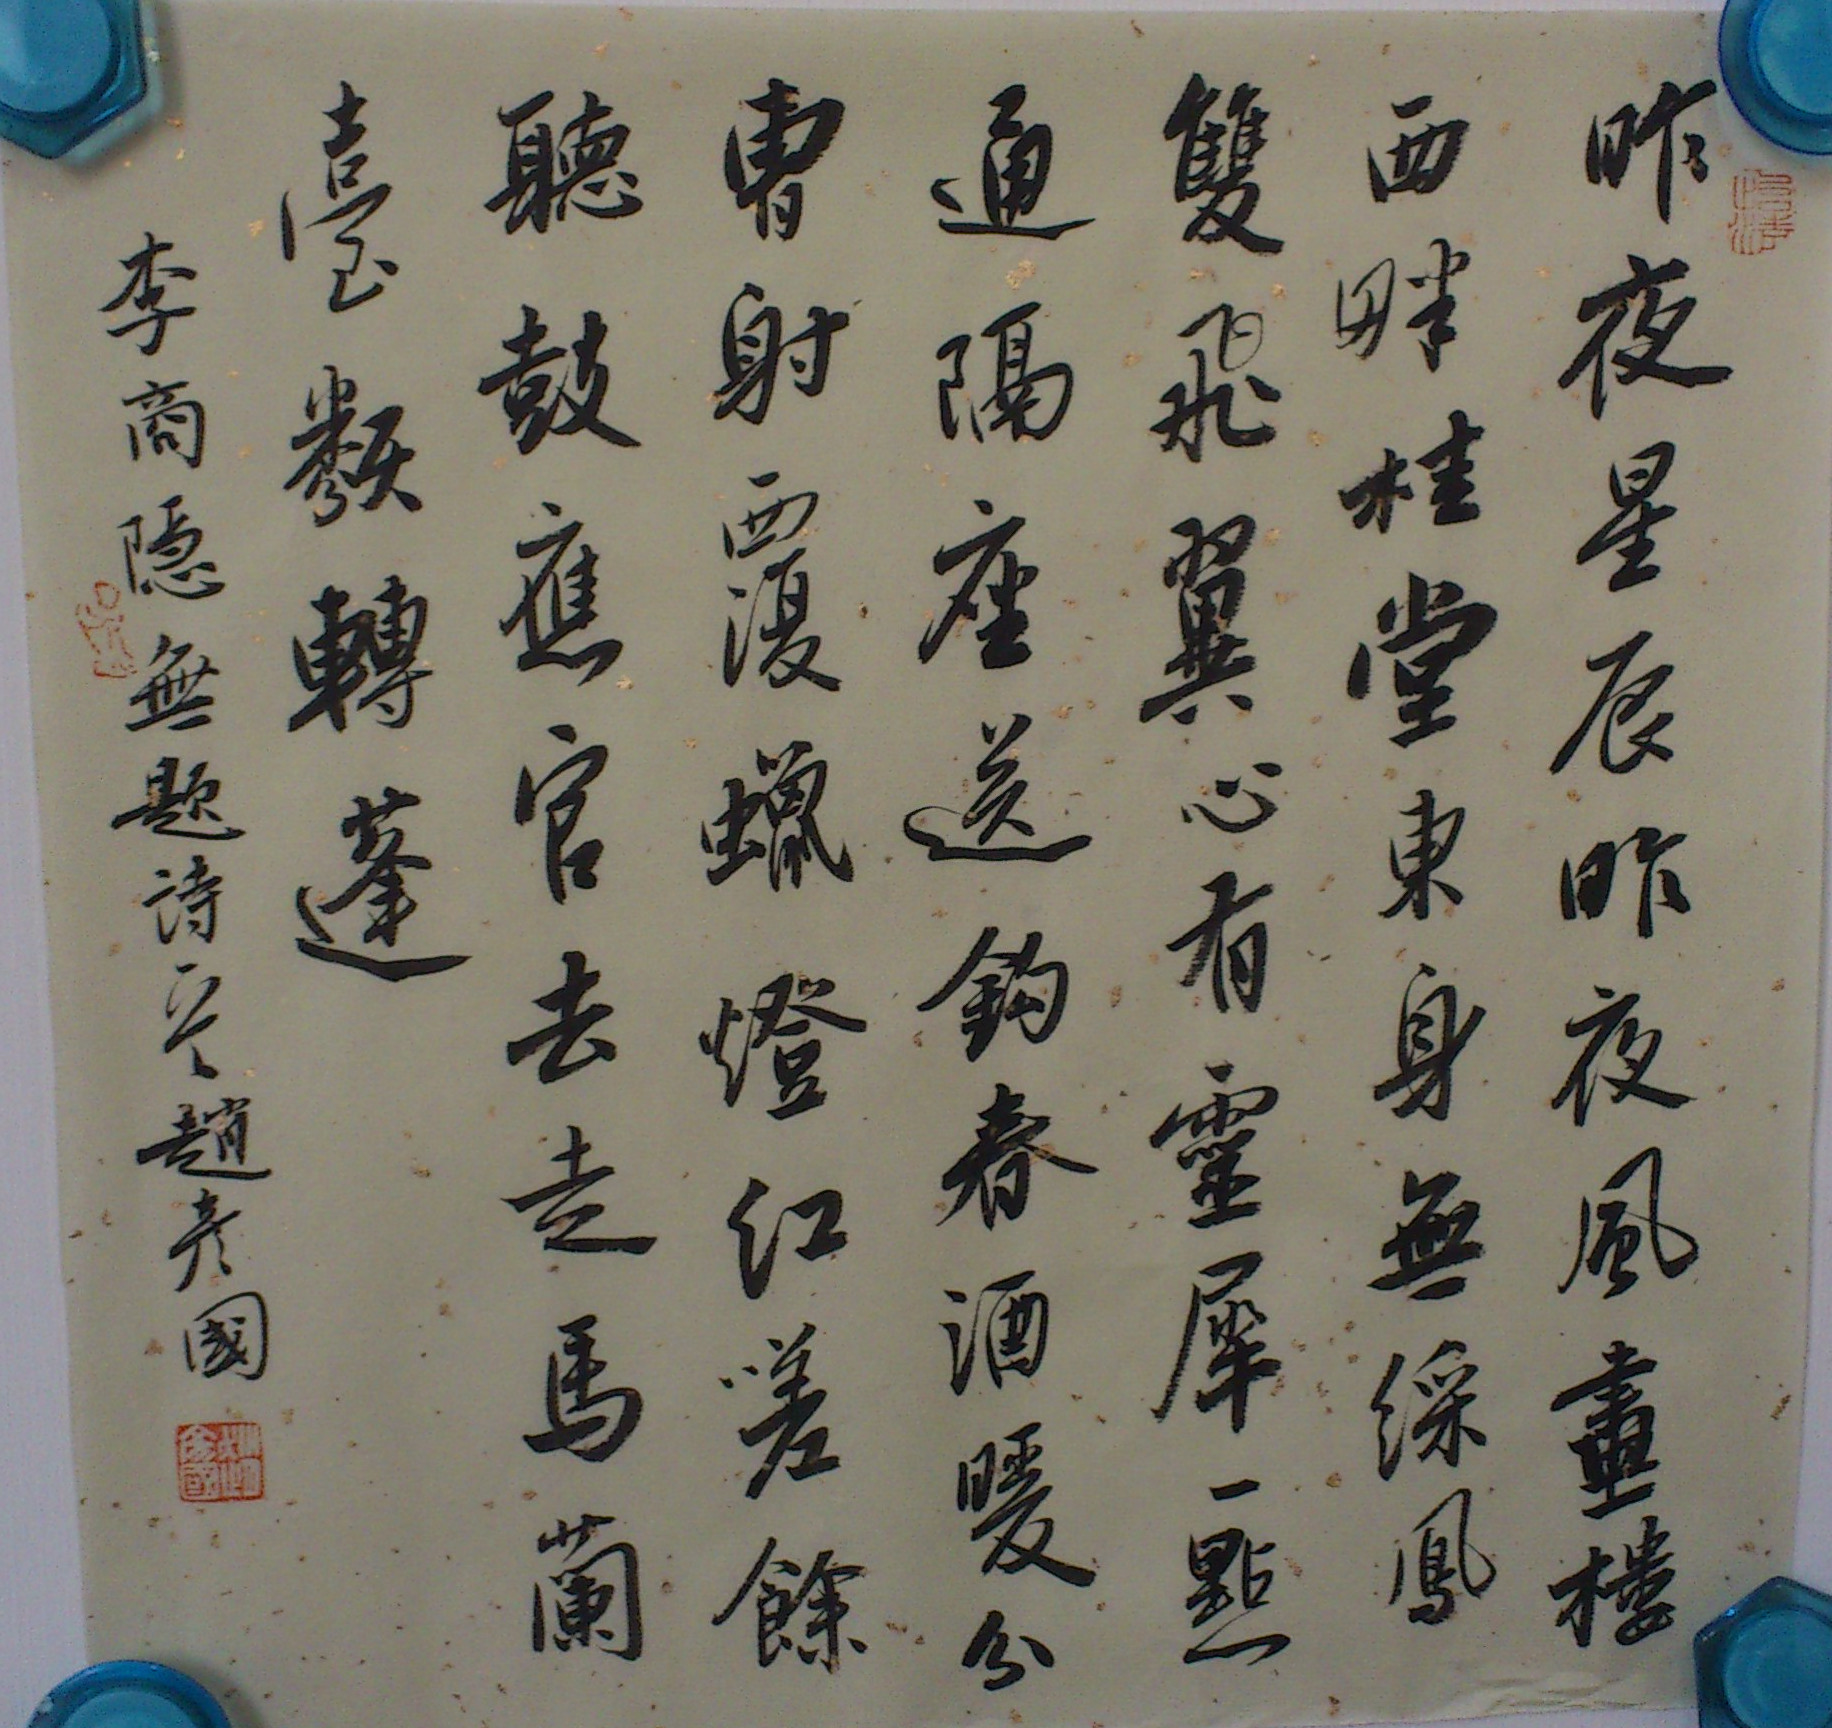 昨夜星辰昨夜風畫樓
西畔桂堂東身無綵鳳
雙飛翼心有靈犀一點
通隔座送鈎春酒暖分
曹射覆蠟燈紅嗟餘
聽鼓應官去走馬蘭
臺類轉蓬
李商隱無題詩一首趙彥國